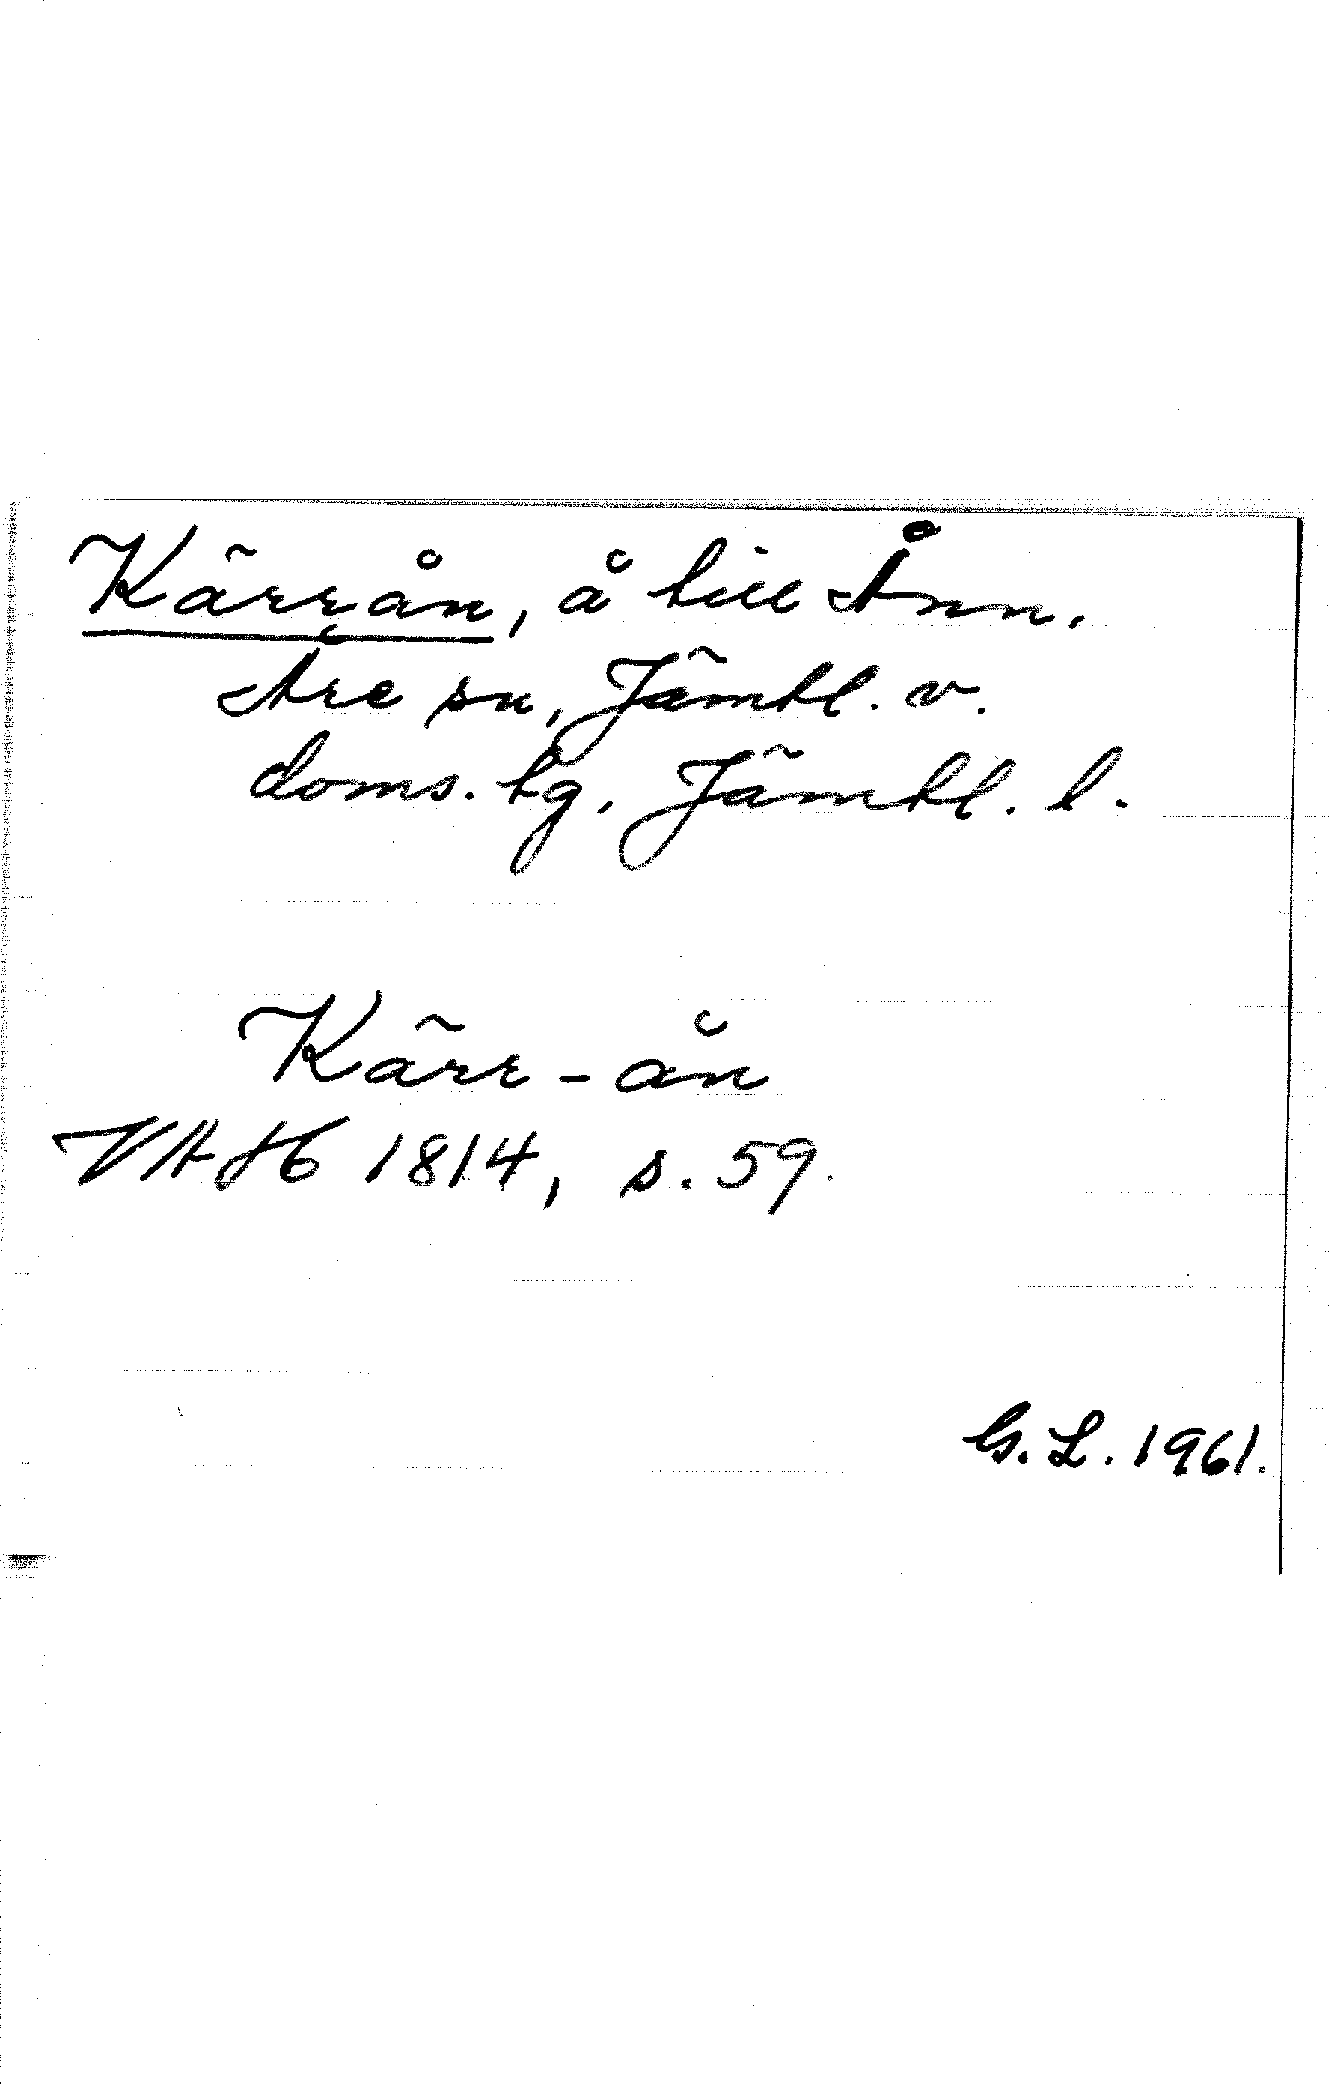 Kärrån, å till Ånn.
Åre sn, Jämtl. v.
doms. tg, Jämtl. l.
Kärr-ån
VAH 1814, s. 59.
G. L. 1961.